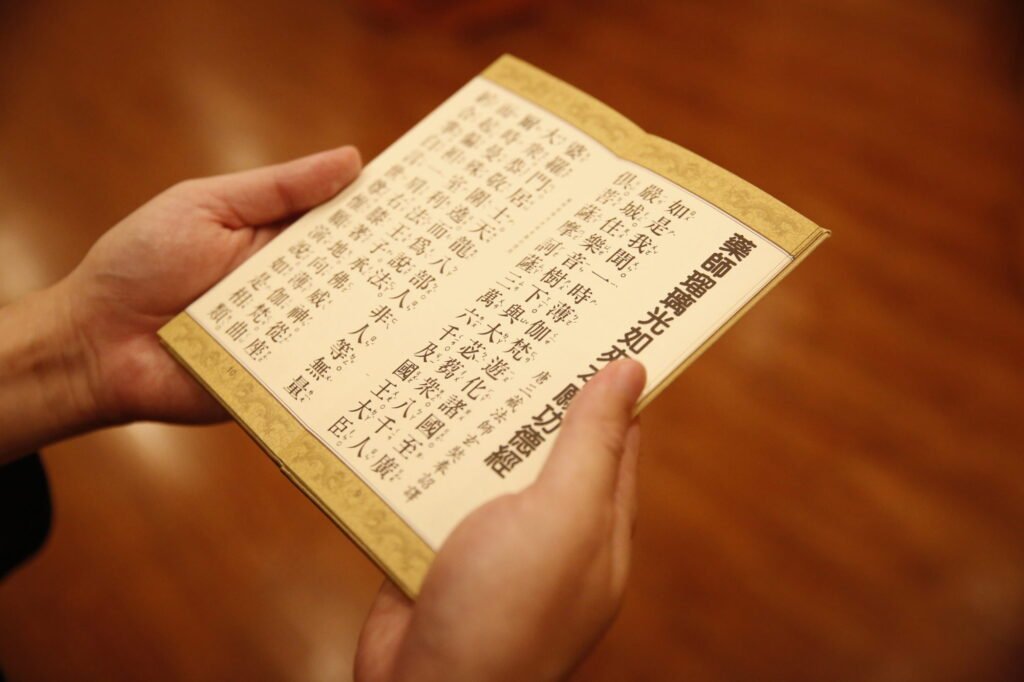 藥師瑠璃光如來本願功德經
唐三藏法師玄奘奉詔譯
如是我聞。一時薄伽梵。遊化諸國。至廣
嚴城。住樂音樹下。與大苾芻眾。八千人
俱。菩薩摩訶薩。三萬六千。及國王大臣。
婆羅門。居士。天龍八部。人非人等。無量
大眾。恭敬圍遶。而爲說法。
爾時曼殊室利法王子。承佛威神。從座
而起。偏袒一肩。右膝著地。向薄伽梵。曲
躬合掌白言。世尊。願當說如是相類